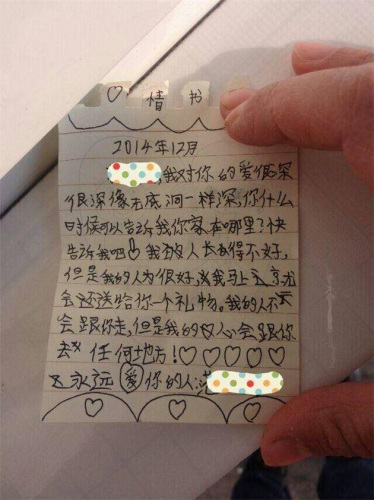 ♡ 情书
2014年12月
,我对你的爱很深
很深像无底洞一样深,你什么
时候可以告诉我你家在哪里?快
告诉我吧!我的人长得不好,
但是我的人为很好,我马上
会还送给你一个礼物。我的人不
会跟你走,但是我的心会跟你
去任何地方!♡♡♡♡♡
永远爱你的人:范